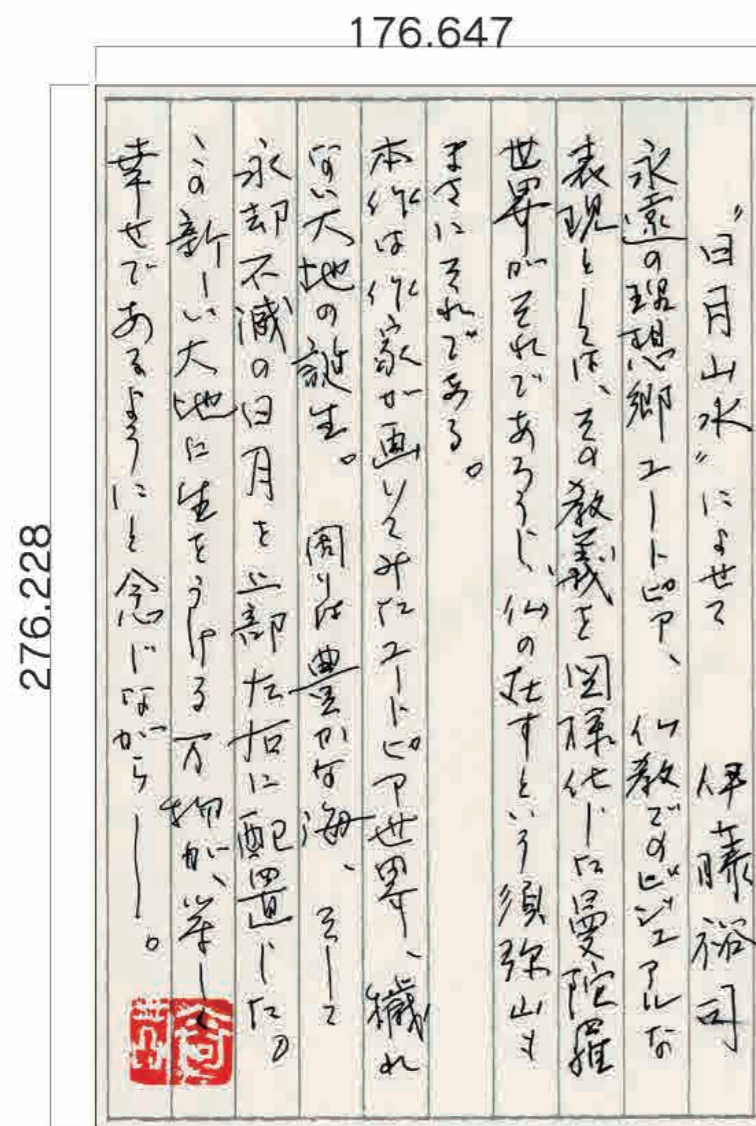 176.647
276.228
“日月山水”によせて　伊藤裕司
永遠の理想郷ユートピア、仏教でのビジュアルな
表現としては、その教義を図様化した曼陀羅
世界がそれであろうし、仏の在すという須弥山も
まさにそれである。
本作は作家が画いてみたユートピア世界、穢れ
ない大地の誕生。周りは豊かな海、そして
永却不滅の日月を上部左右に配置した。
この新しい大地に生をうける万物が、等しく
幸せであるようにと念じながら——。